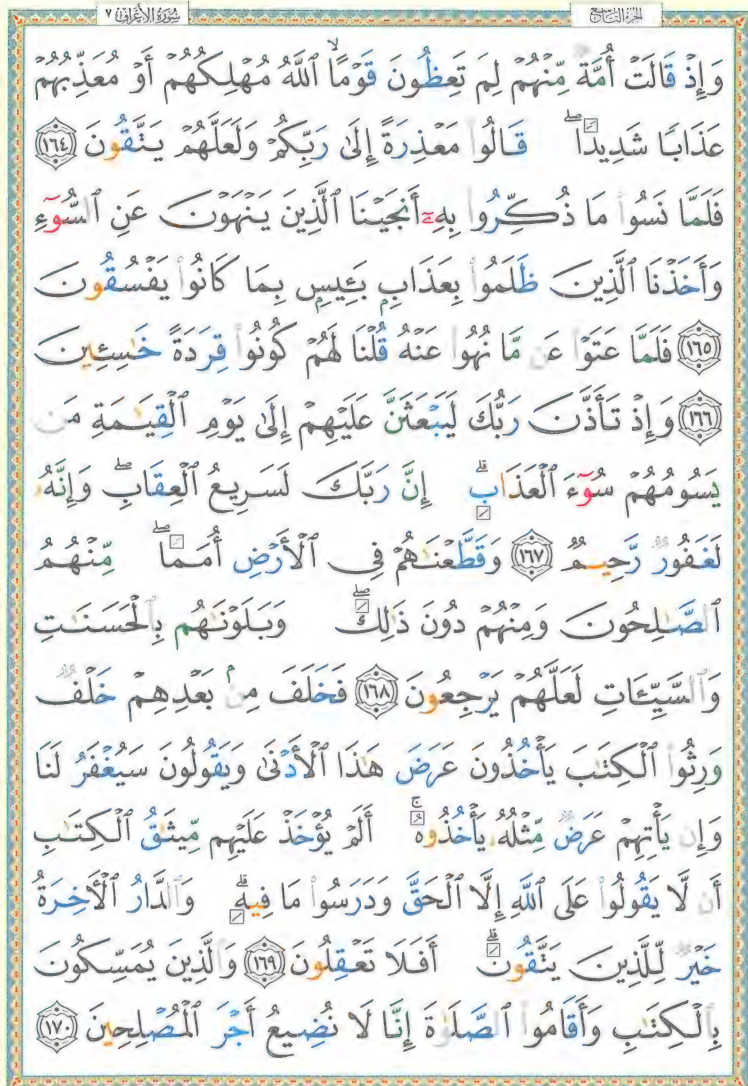 الجزء التاسع
سُورَةُ الأَعْرَاف ٧
وَإِذْ قَالَتْ أُمَّةٌ مِّنْهُمْ لِمَ تَعِظُونَ قَوْمًا ۙ ٱللَّهُ مُهْلِكُهُمْ أَوْ مُعَذِّبُهُمْ
عَذَابًا شَدِيدًا ۖ قَالُوا۟ مَعْذِرَةً إِلَىٰ رَبِّكُمْ وَلَعَلَّهُمْ يَتَّقُونَ ١٦٤
فَلَمَّا نَسُوا۟ مَا ذُكِّرُوا۟ بِهِۦٓ أَنجَيْنَا ٱلَّذِينَ يَنْهَوْنَ عَنِ ٱلسُّوٓءِ
وَأَخَذْنَا ٱلَّذِينَ ظَلَمُوا۟ بِعَذَابٍۭ بَـِٔيسٍۭ بِمَا كَانُوا۟ يَفْسُقُونَ
١٦٥ فَلَمَّا عَتَوْا۟ عَن مَّا نُهُوا۟ عَنْهُ قُلْنَا لَهُمْ كُونُوا۟ قِرَدَةً خَـٰسِـِٔينَ
١٦٦ وَإِذْ تَأَذَّنَ رَبُّكَ لَيَبْعَثَنَّ عَلَيْهِمْ إِلَىٰ يَوْمِ ٱلْقِيَـٰمَةِ مَن
يَسُومُهُمْ سُوٓءَ ٱلْعَذَابِ ۗ إِنَّ رَبَّكَ لَسَرِيعُ ٱلْعِقَابِ ۖ وَإِنَّهُۥ
لَغَفُورٌ رَّحِيمٌ ١٦٧ وَقَطَّعْنَـٰهُمْ فِى ٱلْأَرْضِ أُمَمًا ۖ مِّنْهُمُ
ٱلصَّـٰلِحُونَ وَمِنْهُمْ دُونَ ذَٰلِكَ ۖ وَبَلَوْنَـٰهُم بِٱلْحَسَنَـٰتِ
وَٱلسَّيِّـَٔاتِ لَعَلَّهُمْ يَرْجِعُونَ ١٦٨ فَخَلَفَ مِنۢ بَعْدِهِمْ خَلْفٌ
وَرِثُوا۟ ٱلْكِتَـٰبَ يَأْخُذُونَ عَرَضَ هَـٰذَا ٱلْأَدْنَىٰ وَيَقُولُونَ سَيُغْفَرُ لَنَا
وَإِن يَأْتِهِمْ عَرَضٌ مِّثْلُهُۥ يَأْخُذُوهُ ۚ أَلَمْ يُؤْخَذْ عَلَيْهِم مِّيثَـٰقُ ٱلْكِتَـٰبِ
أَن لَّا يَقُولُوا۟ عَلَى ٱللَّهِ إِلَّا ٱلْحَقَّ وَدَرَسُوا۟ مَا فِيهِ ۗ وَٱلدَّارُ ٱلْـَٔاخِرَةُ
خَيْرٌ لِّلَّذِينَ يَتَّقُونَ ۗ أَفَلَا تَعْقِلُونَ ١٦٩ وَٱلَّذِينَ يُمَسِّكُونَ
بِٱلْكِتَـٰبِ وَأَقَامُوا۟ ٱلصَّلَوٰةَ إِنَّا لَا نُضِيعُ أَجْرَ ٱلْمُصْلِحِينَ ١٧٠